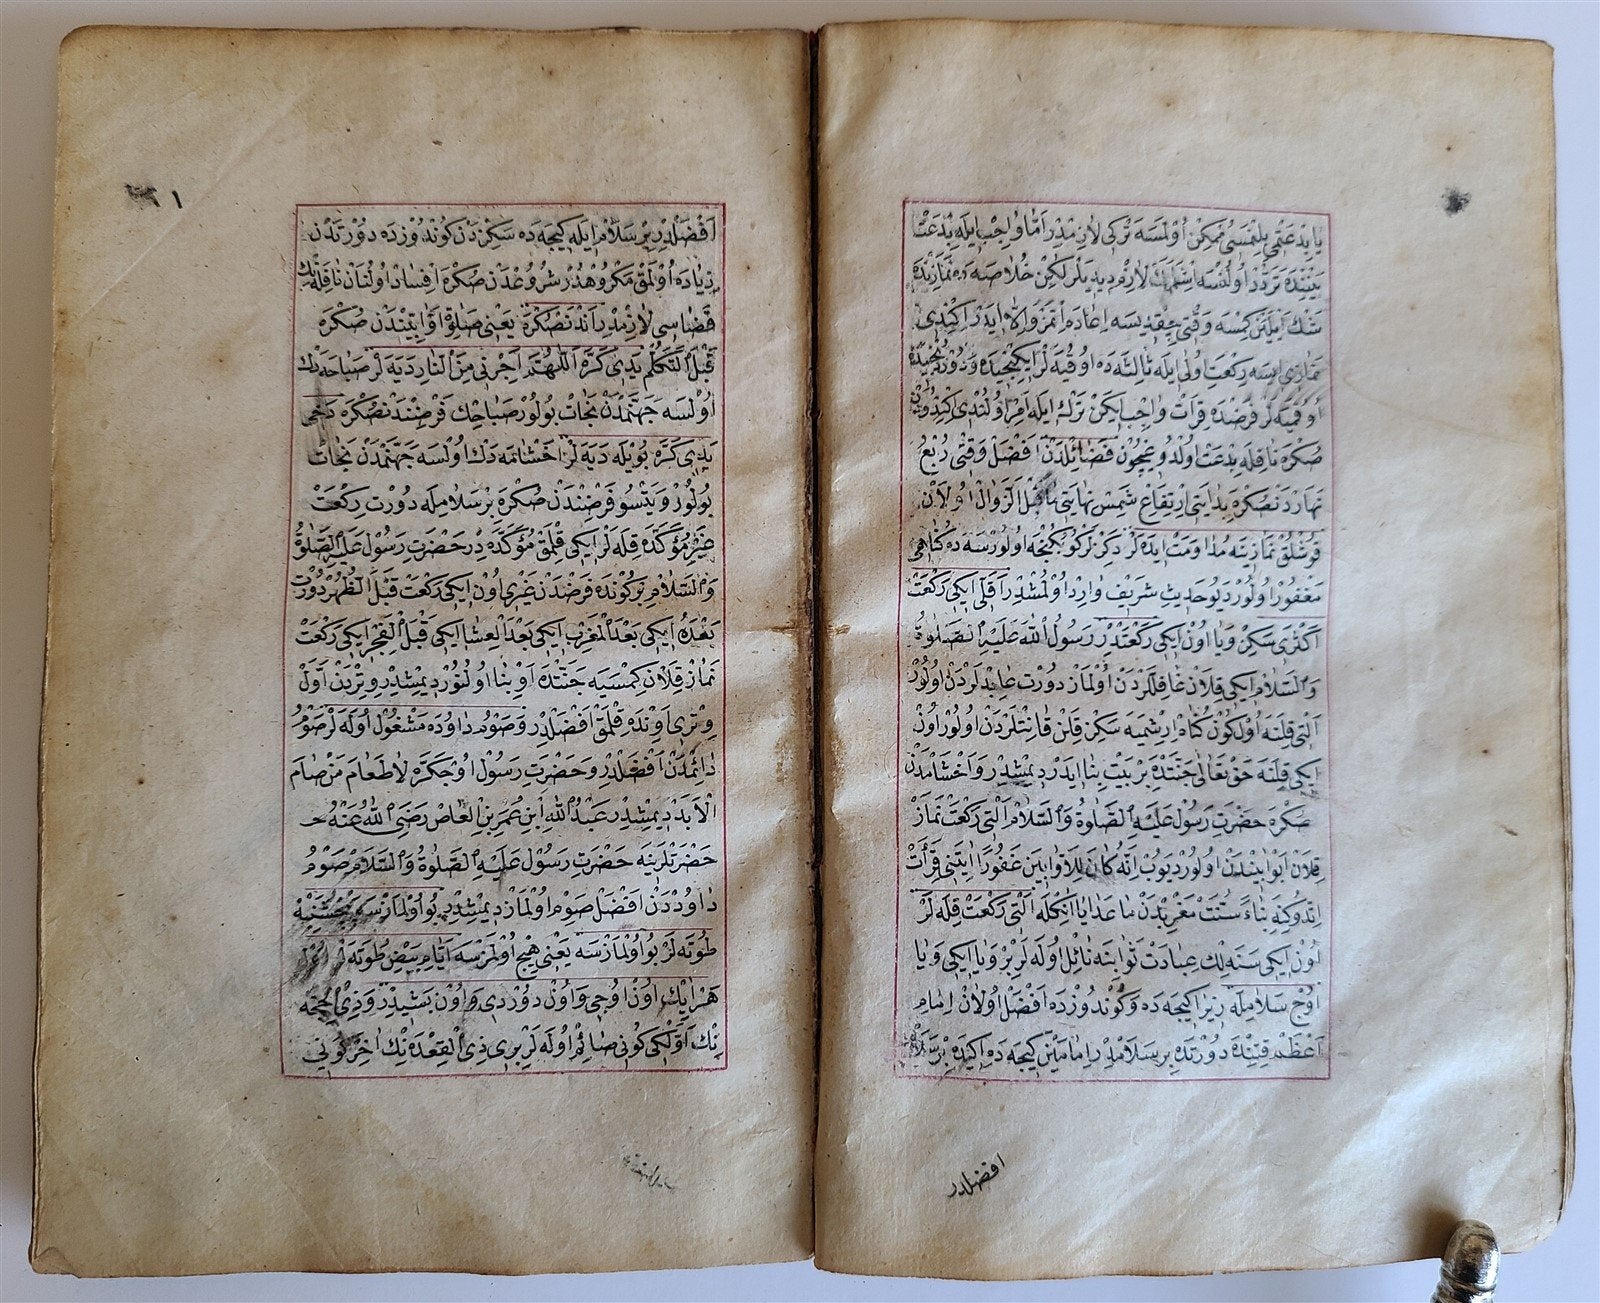 یا بدعتمی بلنمسی ممکن اولمسه ترکی لازمدر اما واجب ایله بدعت
بیننده تردد اولنسه اشلمك لازم دیدیلر لکن خلاصه ده نمازنده
شك ایلین کمسه وقتی چقدیسه اعاده اتمز والا ایدر اکندی
نمازی ایسه رکعت اولی ایله ثالثه ده اوقیه لر ایکنجیده و دوردنجیده
اوقمیه لر فرضده قرات واجب ایکن ترك ایله امر اولندی اکندودن
صکره نافله بدعت اولدوغیچون فضائلدن افضل وقتی ربع
نهاردنصکره بدایتی ارتفاع شمس نهایتی ما قبل الزوال اولان
قوشلق نمازینه مداومت ایده لر دکز لر کوبکنجه اولورسه ده کناهی
مغفور اولور دیو حدیث شریف وارد اولمشدر اقلی ایکی رکعت
اکثری سکز و یا اون ایکی رکعتدر رسول الله علیه الصلوة
والسلام ایکی قلان غافللردن اولماز دورت عابدلردن اولور
التی قلنه اول کون کناه ارشمیه سکز قلن قانتلردن اولور اون
ایکی قلنه حق تعالی جنتده بر بیت بنا ایدر دیمشدر و اخشامدن
صکره حضرت رسول علیه الصلوة والسلام التی رکعت نماز
قلان اوابیندن اولور دیوب انه کان للاوابین غفورا ایتنی قرأت
اتدوکنه بناء سنت مغربدن ما عدایا انکله التی رکعت قله لر
اون ایکی سنه لك عبادت ثوابنه نائل اوله لر بر و یا ایکی و یا
اوج سلامله زیرا کیجه ده و کوندوزده افضل اولان امام
اعظم قتنده دورتده بر سلامدر امامین کیجه ده ایکیده بر سلام
افضلدر
١
افضلدر بر سلام ایله کیجه ده سکزدن کوندوزده دورتدن
زیاده اولمق مکروهدر شروعدن صکره افساد اولنان نافله نك
قضاسی لازمدر اندنصکره یعنی صلوة اوابیندن صکره
قبل التکلم یدی کره اللهم اجرنی من النار دیه لر صباحه دك
اولسه جهنمدن نجات بولور صباحك فرضندنصکره دخی
یدی کره بویله دیه لر اخشامه دك اولسه جهنمدن نجات
بولور و یتسو فرضندن صکره بر سلامله دورت رکعت
غیر مؤکده قله لر ایکی قلمق مؤکده در حضرت رسول علیه الصلوة
والسلام بر کونده فرضدن غیری اون ایکی رکعت قبل الظهر دورت
بعده ایکی بعد المغرب ایکی بعد العشا ایکی قبل الفجر ایکی رکعت
نماز قلان کمسیه جنتده او بنا اولنور دیمشدر وتردن اول
وتری اونده قلمق افضلدر و صوم داوده مشغول اوله لر صوم
دائمدن افضلدر و حضرت رسول اوج کره لا طعام من صام
الابد دیمشدر عبد الله ابن عمر بن العاص رضی الله عنه
حضرتلرینه حضرت رسول علیه الصلوة والسلام صوم
داوددن افضل صوم اولماز دیمشدر بو اولمازسه پنجشنبه
طوته لر بو اولمازسه یعنی هیج اولمزسه ایام بیض طوته لر
هر ایك اون اوجی و اون دوردی و اون بشیدر و ذی الحجه
نك اولکی کونی صائم اوله لر بری ذی القعده نك اخر کونی